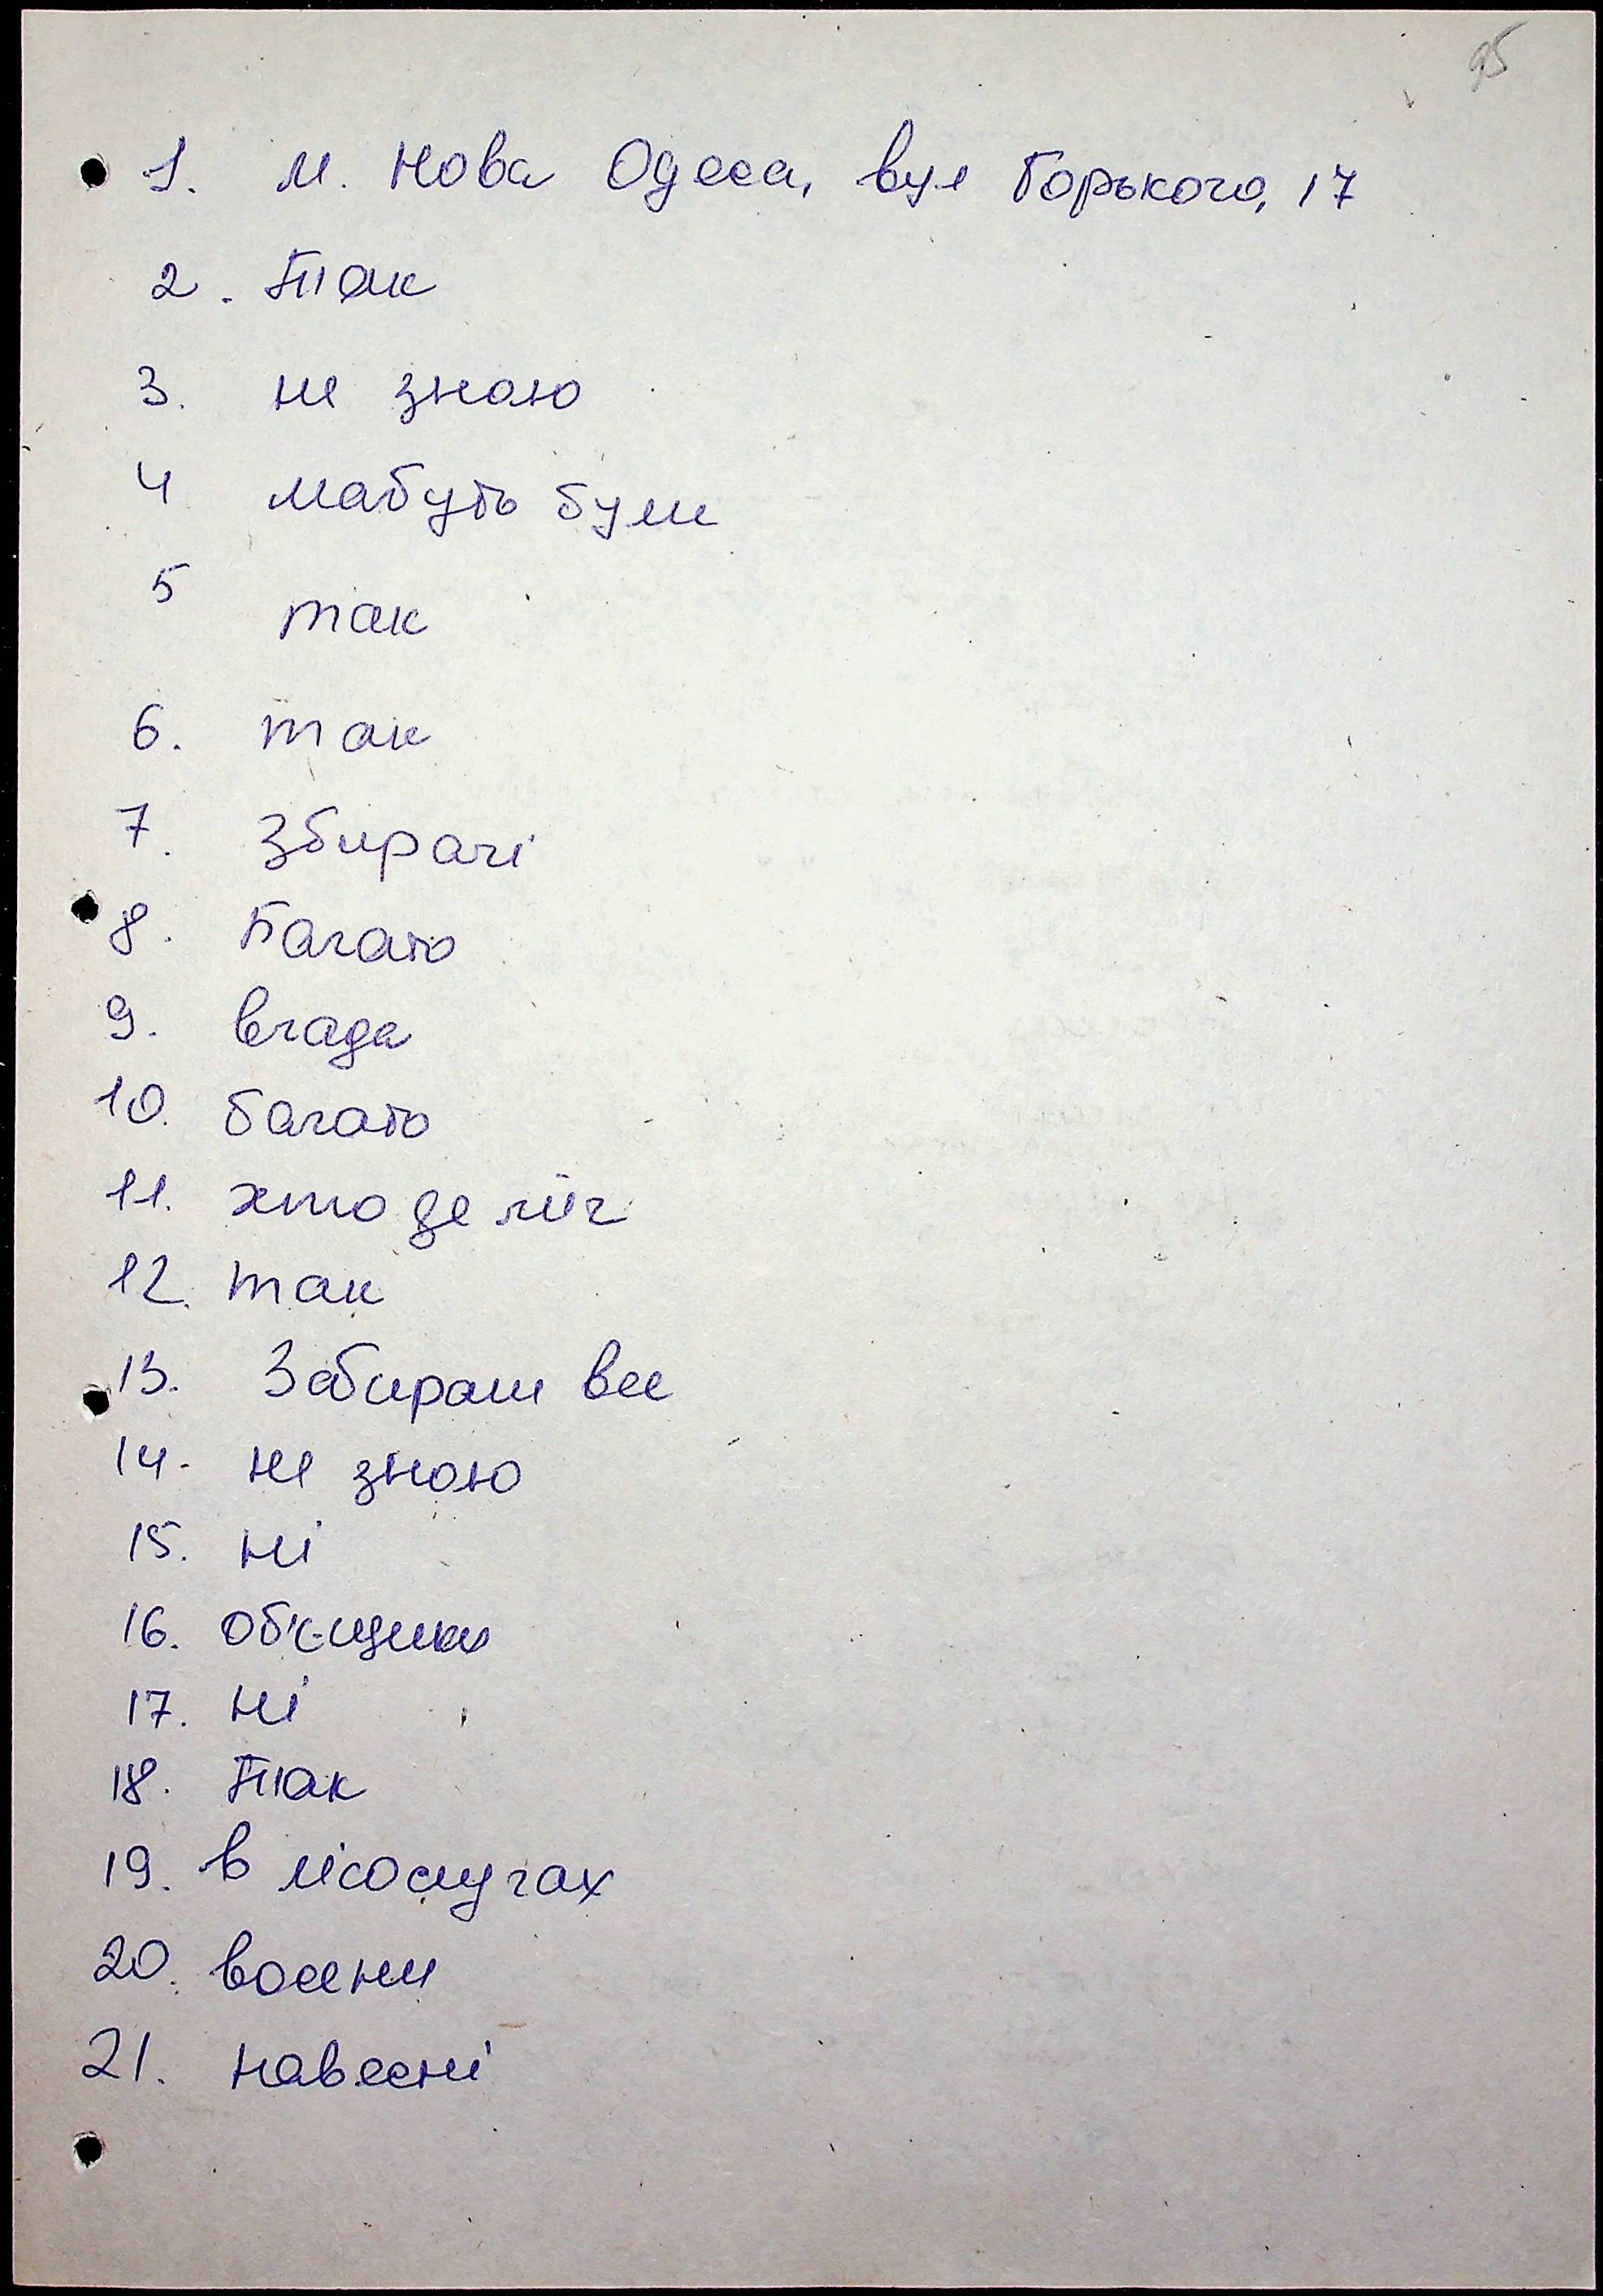 95
1. м. Нова Одеса, вул Горького, 17
2. Так
3. не знаю
4 мабуть були
5 так
6. так
7. Збирачі
8. Багато
9. влада
10. багато
11. хто де міг
12. так
13. Забирали все
14. не знаю
15. ні
16. об'єщики
17. ні
18. Так
19. в лісосмугах
20. восени
21. навесні